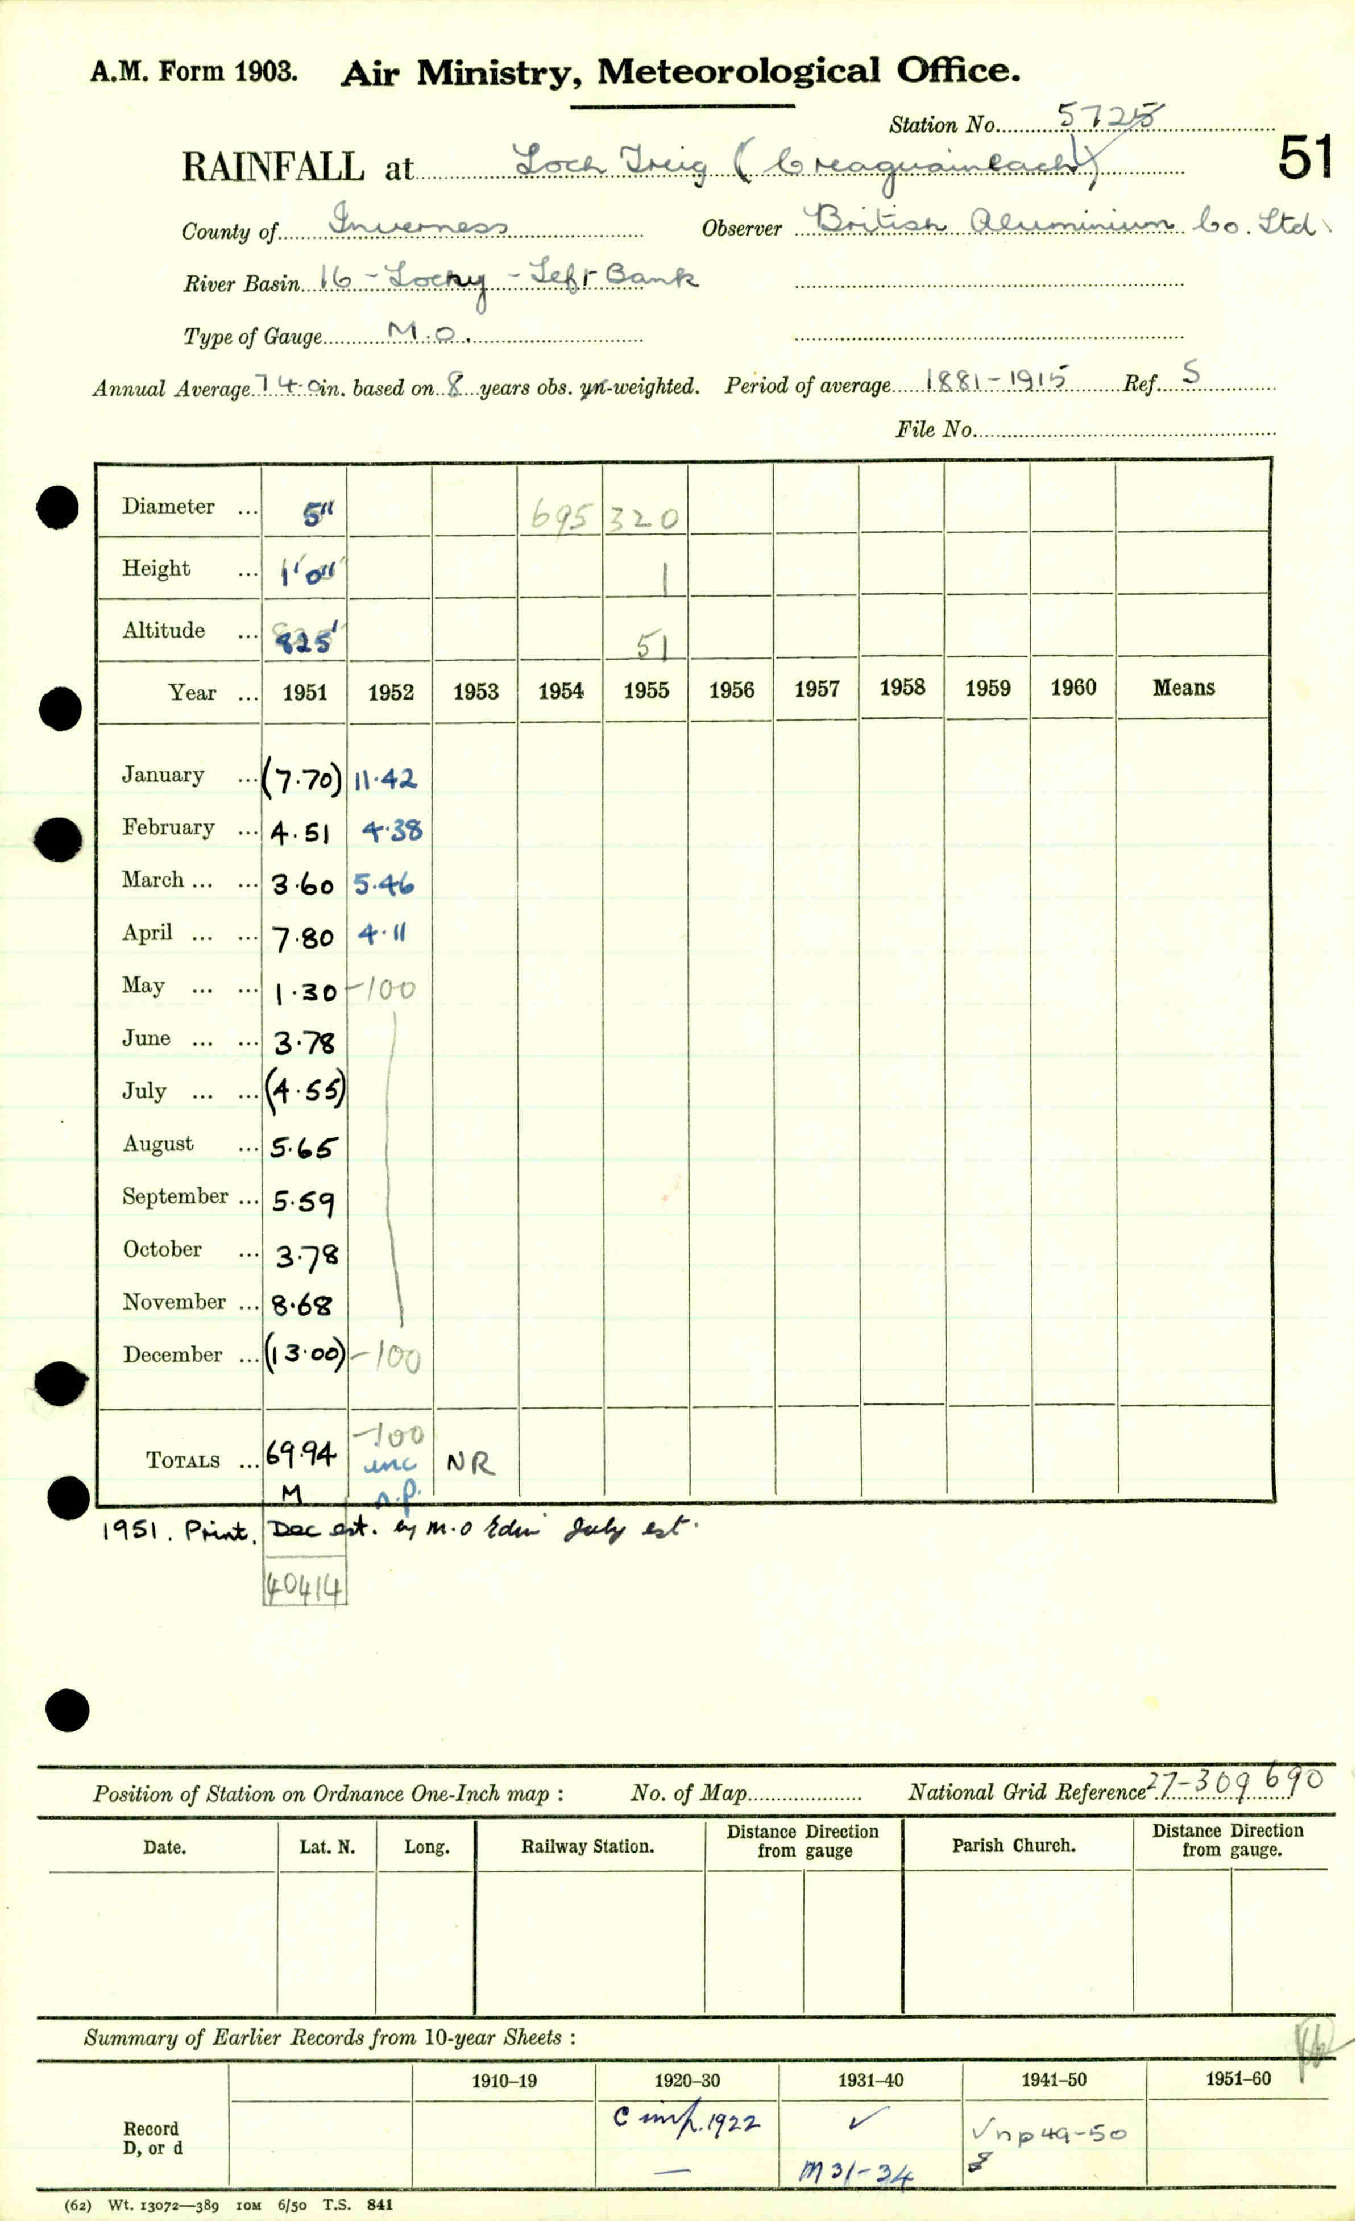 A.M. Form 1903. Air Ministry, Meteorological Office.
Station No. 5725
RAINFALL at Loch Treig (Creaguaineach) 51
County of Inverness Observer British Aluminium Co. Ltd
River Basin 16 - Lochy - Left Bank
Type of Gauge M.O.
Annual Average 74.0 in. based on 8 years obs. un-weighted. Period of average 1881-1915 Ref. S
File No.
Diameter ... 5" 695 320
Height ... 1'0" 1
Altitude ... 825' 51
Year ... 1951 1952 1953 1954 1955 1956 1957 1958 1959 1960 Means
January ... (7.70) 11.42
February ... 4.51 4.38
March ... ... 3.60 5.46
April ... ... 7.80 4.11
May ... ... 1.30 -100
June ... ... 3.78
July ... ... (4.55)
August ... 5.65
September ... 5.59
October ... 3.78
November ... 8.68
December ... (13.00) -100
TOTALS ... 69.94 -100 NR
inc
M n.p.
1951. Print. Dec est. by M.O Edin July est.
40414
Position of Station on Ordnance One-Inch map : No. of Map National Grid Reference 27-309690
Date. Lat. N. Long. Railway Station. Distance from Direction gauge Parish Church. Distance from Direction gauge.
Summary of Earlier Records from 10-year Sheets :
1910-19 1920-30 1931-40 1941-50 1951-60
Record C imp. 1922 ✓ ✓ np 49-50
D, or d — M 31-34
(62) Wt. 13072—389 10M 6/50 T.S. 841